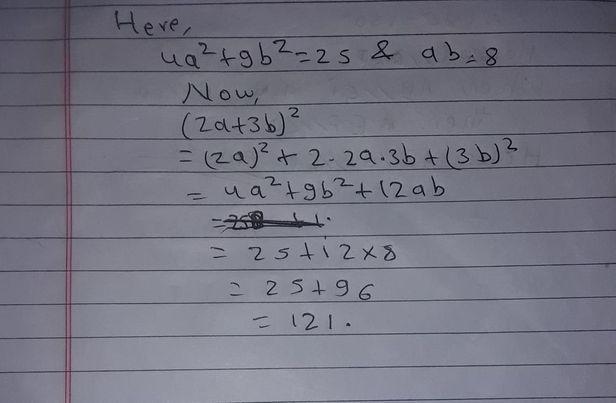 Here,
4a²+9b²=25 & ab=8
Now,
(2a+3b)²
=(2a)²+2·2a·3b+(3b)²
=4a²+9b²+12ab
=25+12×8
=25+96
=121.